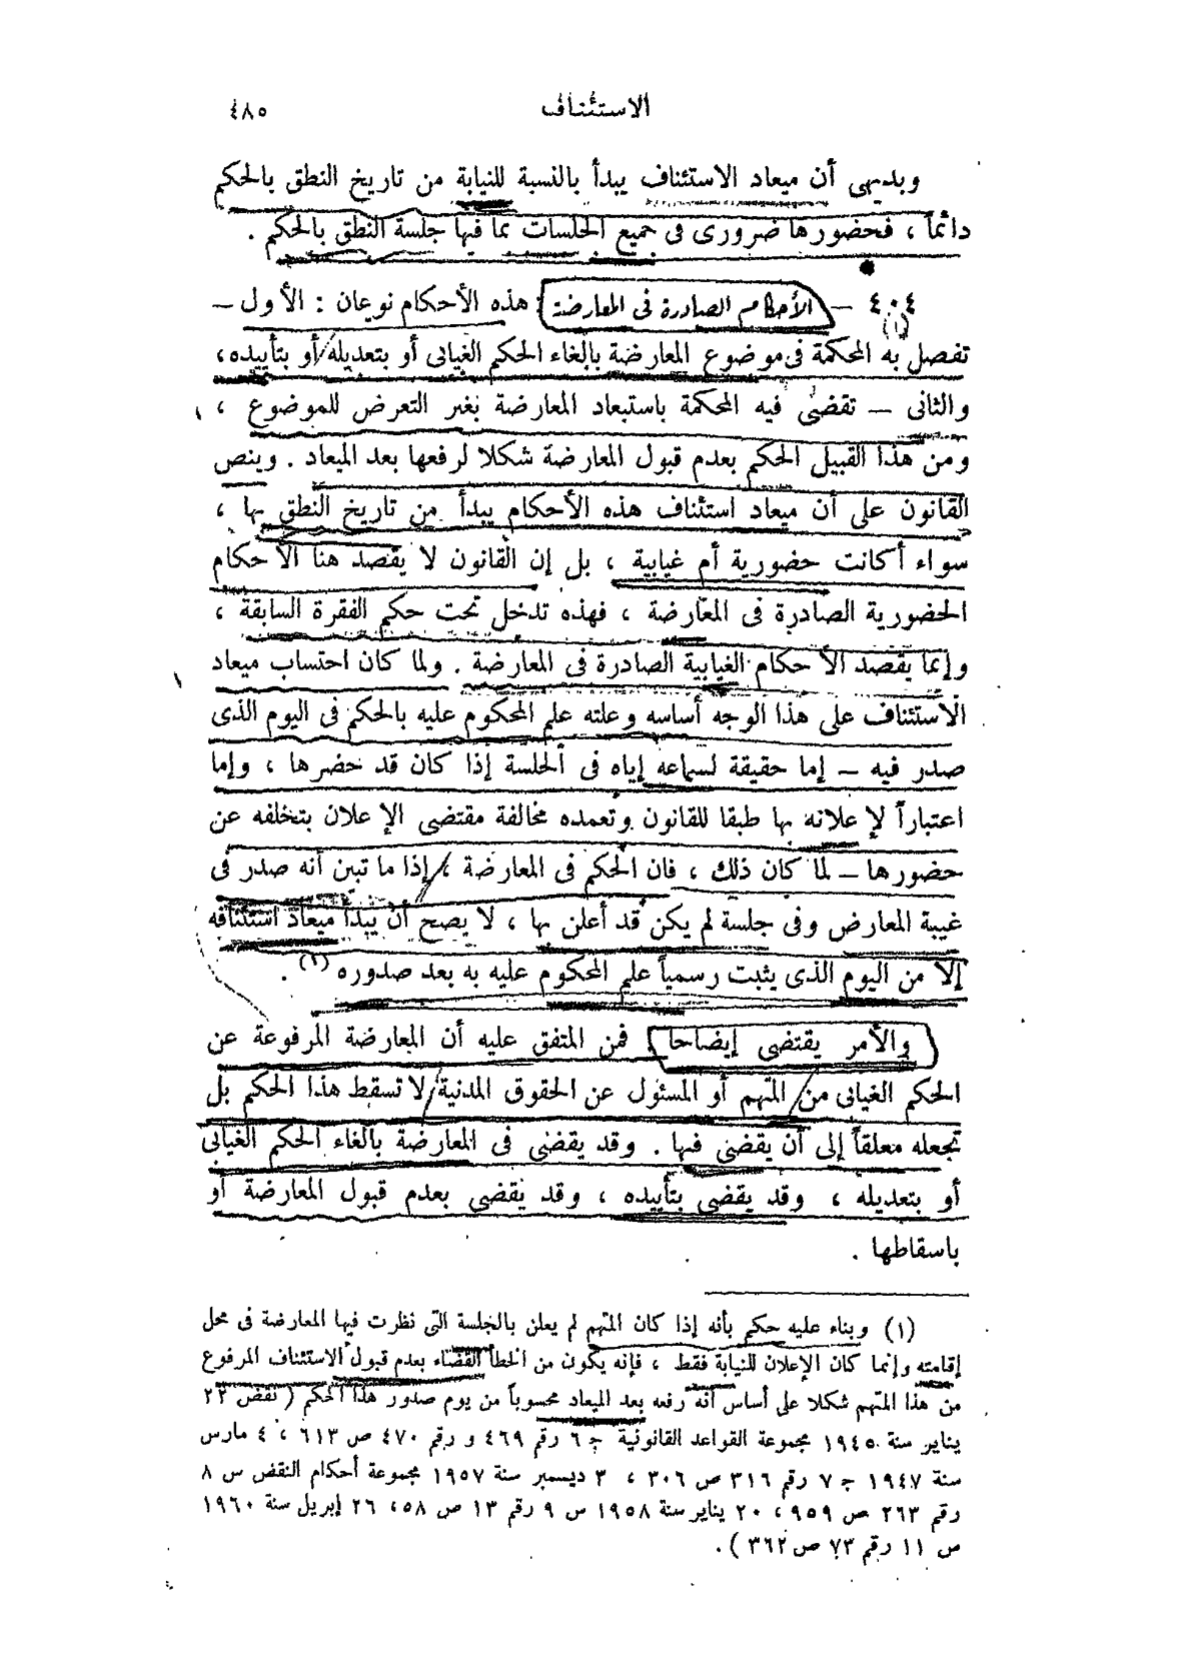 الاستئناف ٤٨٥
وبديهى أن ميعاد الاستئناف يبدأ بالنسبة للنيابة من تاريخ النطق بالحكم
دائماً ، فحضورها ضرورى فى جميع الجلسات بما فيها جلسة النطق بالحكم .
٤٠٤ – الأحكام الصادرة فى المعارضة : هذه الأحكام نوعان : الأول –
تفصل به المحكمة فى موضوع المعارضة بإلغاء الحكم الغيابى أو بتعديله أو بتأييده ،
والثانى – تقضى فيه المحكمة باستبعاد المعارضة بغير التعرض للموضوع ،
ومن هذا القبيل الحكم بعدم قبول المعارضة شكلا لرفعها بعد الميعاد . وينص
القانون على أن ميعاد استئناف هذه الأحكام يبدأ من تاريخ النطق بها ،
سواء أكانت حضورية أم غيابية ، بل إن القانون لا يقصد هنا الأحكام
الحضورية الصادرة فى المعارضة ، فهذه تدخل تحت حكم الفقرة السابقة ،
وإنما يقصد الأحكام الغيابية الصادرة فى المعارضة . ولما كان احتساب ميعاد
الاستئناف على هذا الوجه أساسه وعلته علم المحكوم عليه بالحكم فى اليوم الذى
صدر فيه – إما حقيقة لسماعه إياه فى الجلسة إذا كان قد حضرها ، وإما
اعتباراً لإعلانه بها طبقا للقانون وتعمده مخالفة مقتضى الإعلان بتخلفه عن
حضورها – لما كان ذلك ، فان الحكم فى المعارضة ، إذا ما تبين أنه صدر فى
غيبة المعارض وفى جلسة لم يكن قد أعلن بها ، لا يصح أن يبدأ ميعاد استئنافه
إلا من اليوم الذى يثبت رسمياً علم المحكوم عليه به بعد صدوره (١) .
والأمر يقتضى إيضاحا . فمن المتفق عليه أن المعارضة المرفوعة عن
الحكم الغيابى من المتهم أو المسئول عن الحقوق المدنية لا تسقط هذا الحكم بل
تجعله معلقاً إلى أن يقضى فيها . وقد يقضى فى المعارضة بالغاء الحكم الغيابى
أو بتعديله ، وقد يقضى بتأييده ، وقد يقضى بعدم قبول المعارضة أو
باسقاطها .
(١) وبناء عليه حكم بأنه إذا كان المتهم لم يعلن بالجلسة التى نظرت فيها المعارضة فى محل
إقامته وإنما كان الإعلان للنيابة فقط ، فإنه يكون من الخطأ القضاء بعدم قبول الاستئناف المرفوع
من هذا المتهم شكلا على أساس أنه رفعه بعد الميعاد محسوباً من يوم صدور هذا الحكم ( نقض ٢٢
يناير سنة ١٩٤٥ مجموعة القواعد القانونية ج ٦ رقم ٤٦٩ و رقم ٤٧٠ ص ٦١٣ ، ٤ مارس
سنة ١٩٤٧ ج ٧ رقم ٣١٦ ص ٣٠٦ ، ٣ ديسمبر سنة ١٩٥٧ مجموعة أحكام النقض س ٨
رقم ٢٦٣ ص ٩٥٩ ، ٢٠ يناير سنة ١٩٥٨ س ٩ رقم ١٣ ص ٥٨ ، ٢٦ إبريل سنة ١٩٦٠
س ١١ رقم ٧٣ ص ٣٦٢ ) .